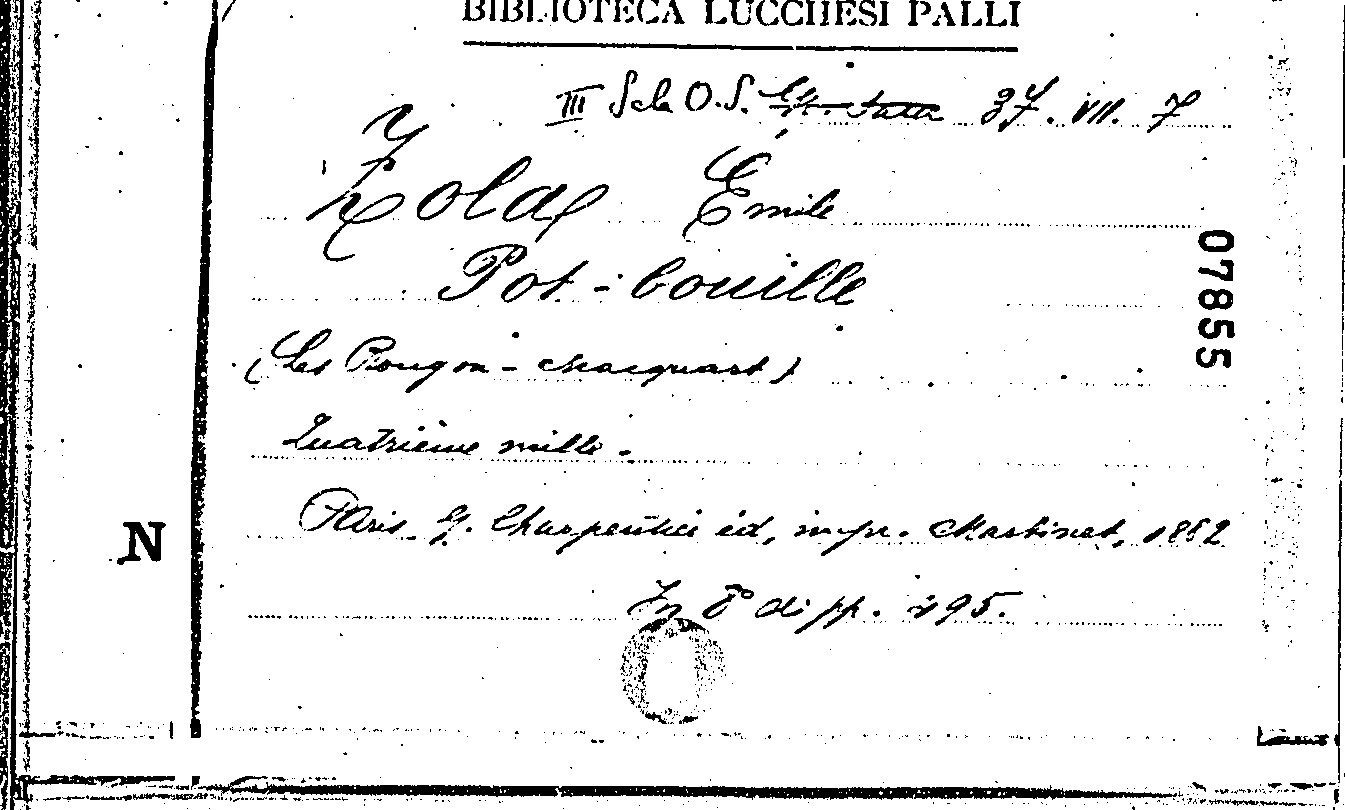 BIBLIOTECA LUCCHESI PALLI
III Sala O.S. 37. VII. 7
Zola Emile
Pot-bouille
07855
(Les Rougon-Macquart)
Quatrième mille.
N
Paris. G. Charpentier éd, impr. Martinet, 1882
In 8° di pp. 495.